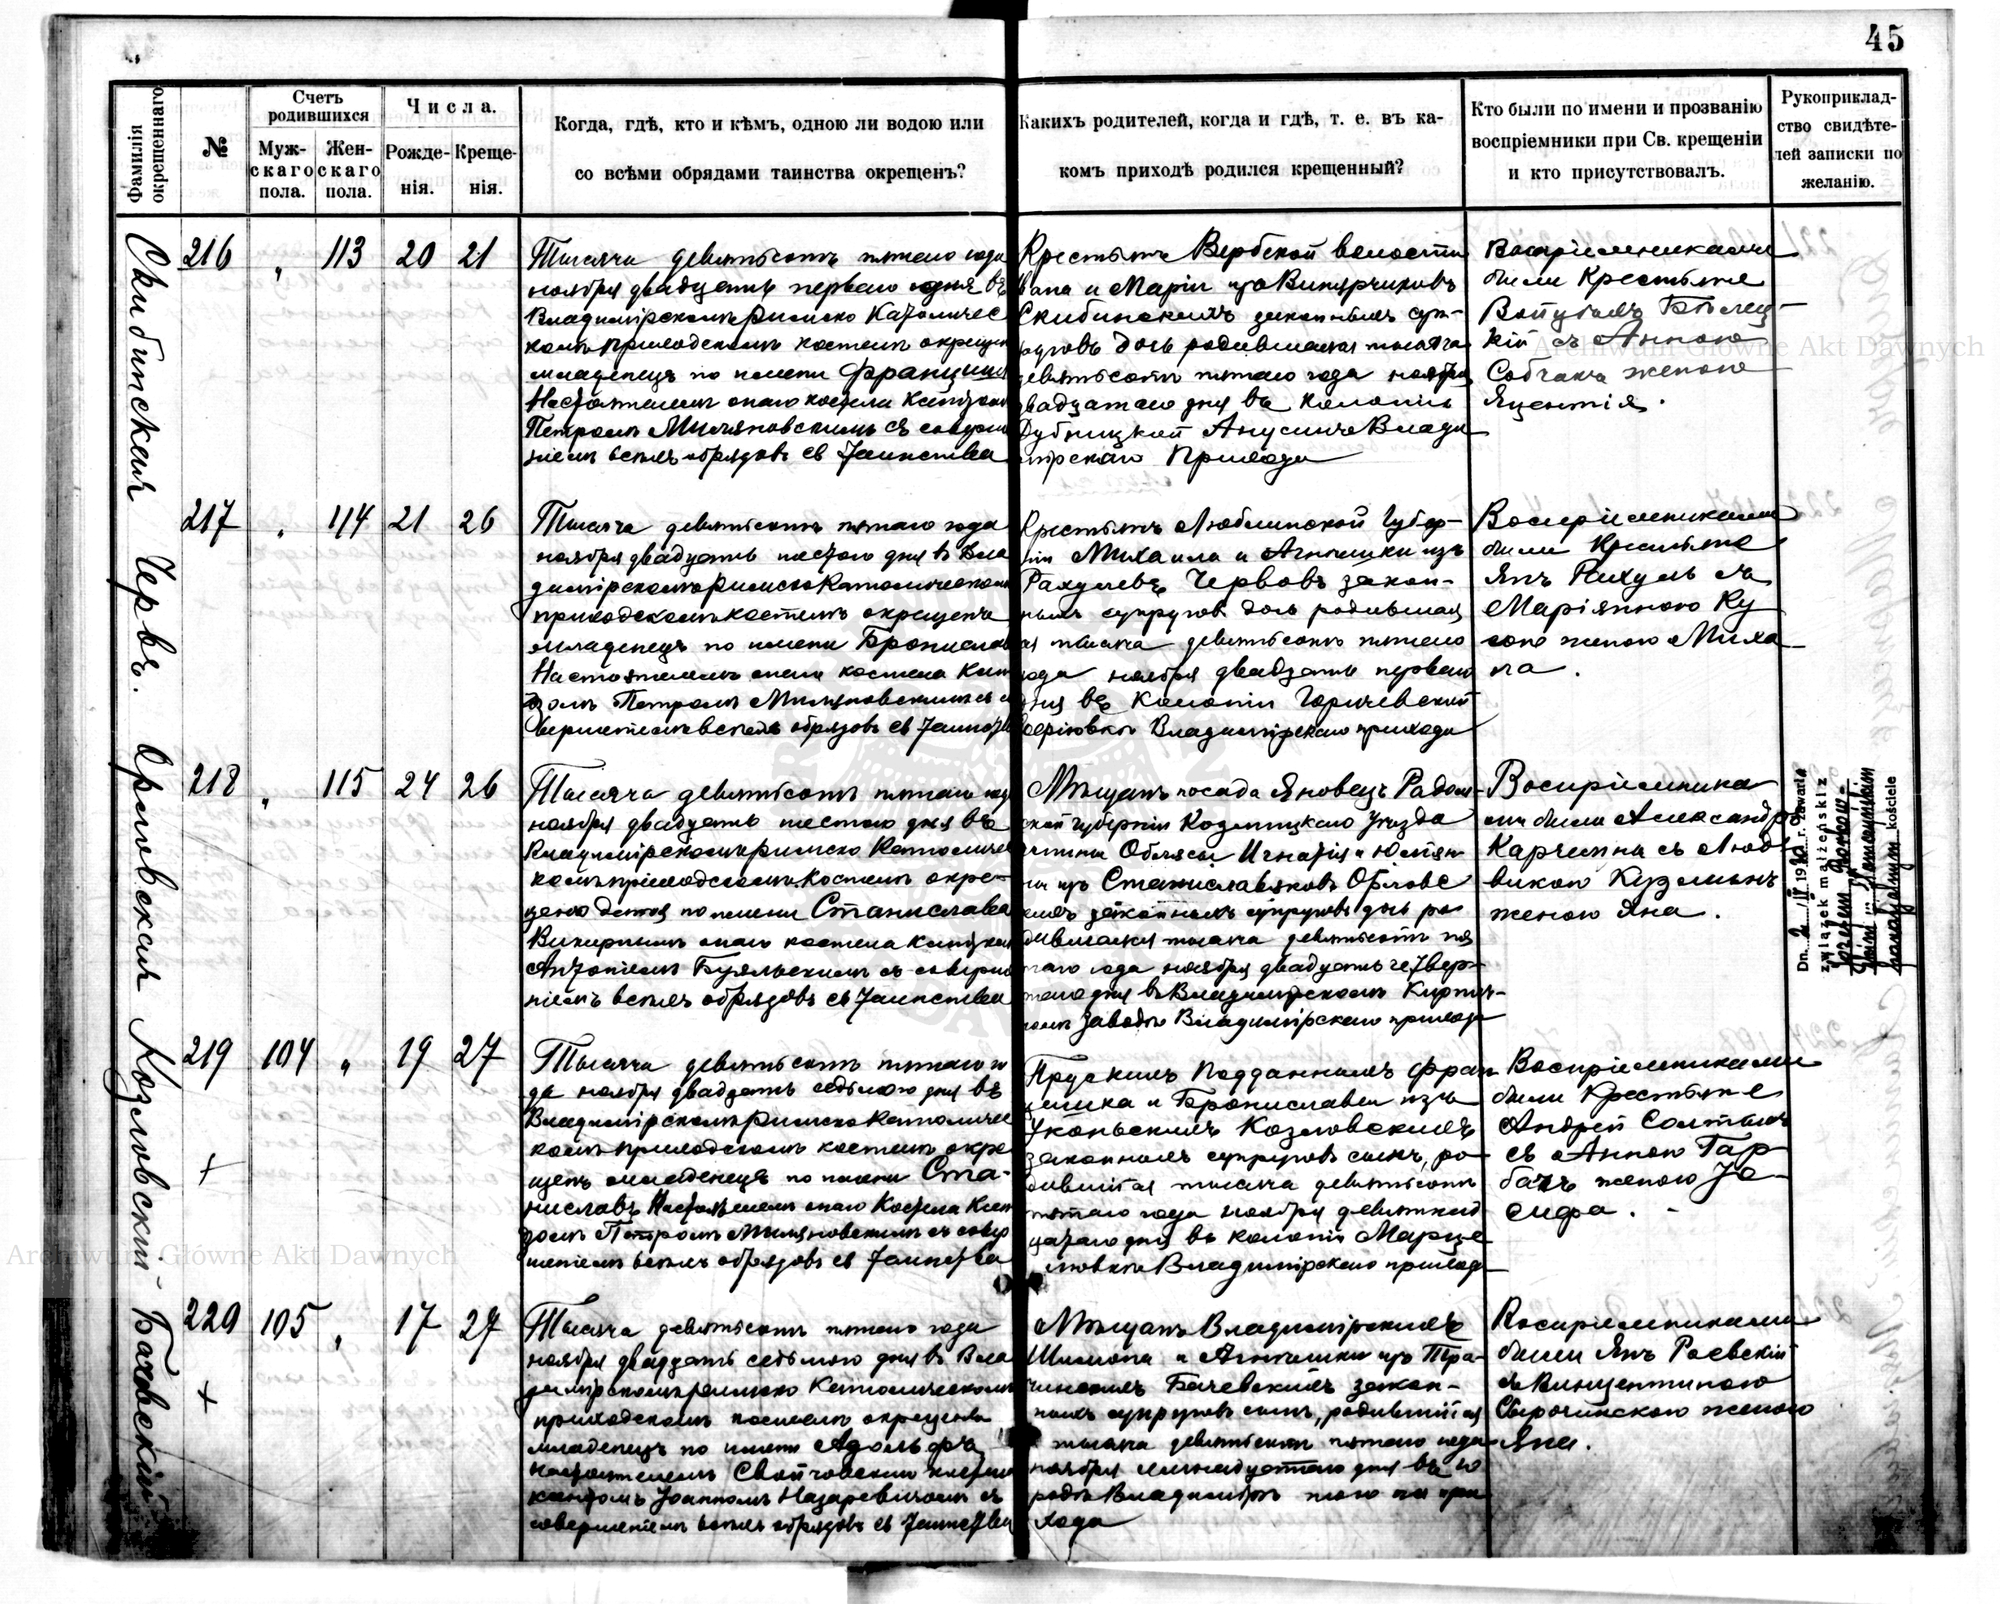 45
Фамилія окрещеннаго
№
Счетъ родившихся
Мужскаго пола.
Женскаго пола.
Числа.
Рожденія.
Крещенія.
Когда, гдѣ, кто и кѣмъ, одною ли водою или
со всѣми обрядами таинства окрещенъ?
Какихъ родителей, когда и гдѣ, т. е. въ ка-
комъ приходѣ родился крещенный?
Кто были по имени и прозванію
воспріемники при Св. крещеніи
и кто присутствовалъ.
Рукоприклад-
ство свидѣте-
лей записки по
желанію.
Скибинская
216 " 113 20 21
Тысяча девятьсотъ пятаго года
ноября двадцать перваго дня въ
Владимірскомъ Римско Католичес
комъ приходскомъ костелѣ окрещен
младенецъ по имени Францишка
Настоятелемъ онаго костела Ксендзомъ
Петромъ Миляновскимъ съ соверше
ніемъ всѣхъ обрядовъ св Таинства
Крестьянъ Вербской волости
Ивана и Маріи изъ
Скибинскихъ законныхъ суп-
руговъ дочь родившаяся тысяча
девятьсотъ пятаго года ноября
двадцатаго дня въ колоніи
Дубницкой Владим
ірскаго Прихода
Воспріемниками
были Крестьяне
Войцехъ
съ Анною
Собчакъ женою
Яцентія.
Червъ.
217 " 114 21 26
Тысяча девятьсотъ пятаго года
ноября двадцать шестого дня въ Вла
димірскомъ Римско Католическомъ
приходскомъ костелѣ окрещенъ
младенецъ по имени Бронислава
Настоятелемъ онаго костела Ксен
дзомъ Петромъ Миляновскимъ съ со
вершеніемъ всѣхъ обрядовъ св Таинства
Крестьянъ Люблинской Губер-
ніи Михаила и Агнешки изъ
Рахулевъ Червовъ закон-
ныхъ супруговъ дочь родившая
ся тысяча девятьсотъ пятаго
года ноября двадцать перваго
дня въ Колоніи
Владимірскаго прихода
Воспріемниками
были Крестьяне
Янъ Рахуль съ
Маріянною Ку
женою Миха
ла.
Орловская
218 " 115 24 26
Тысяча девятьсотъ пятаго года
ноября двадцать шестого дня въ
Владимірскомъ Римско Католичес
комъ приходскомъ Костелѣ окре-
щено Дитя по имени Станислава
Викарнымъ онаго костела Ксендзомъ
Антоніемъ съ соверше
ніемъ всѣхъ обрядовъ св Таинства
Мѣщанъ посада Яновецъ Радом-
ской губерніи Козеницкаго Уѣзда
гмины Обляссы Игнатія и
изъ Станиславяковъ Орловс
кихъ законныхъ супруговъ дочь ро
дившаяся тысяча девятьсотъ пя
таго года ноября двадцать четвер-
таго дня въ Владимірскомъ Кирпич-
номъ Заводѣ Владимірскаго прихода
Воспріемника
ми были Александръ
съ Людо
викою Кузьминъ
женою Яна.
Dn. 2/II 19 r. zawarła
związek małżeński z
kościele
Козловскій
219 104 " 19 27
+
Тысяча девятьсотъ пятаго го
да ноября двадцать седьмого дня въ
Владимірскомъ Римско Католичес
комъ приходскомъ костелѣ окре
щенъ младенецъ по имени Ста-
ниславъ Настоятелемъ онаго Костела Ксен
дзомъ Петромъ Миляновскимъ съ совер
шеніемъ всѣхъ обрядовъ св Таинства
Прускихъ Подданныхъ Фран
цишка и Брониславы изъ
Козловскихъ
законныхъ супруговъ сынъ, ро-
дившійся тысяча девятьсотъ
пятаго года ноября девятнад
цатаго дня въ колоніи Марце
Владимірскаго прихода
Воспріемниками
были Крестьяне
Андрей Солтысъ
съ Анною Гар
бачъ женою Іо-
сифа.
Бачевскій
220 105 " 17 27
+
Тысяча девятьсотъ пятаго года
ноября двадцать седьмого дня въ Вла
димірскомъ Римско Католическомъ
приходскомъ костелѣ окрещенъ
младенецъ по имени Адольфъ
настоятелемъ Свойчовскаго костела
ксендзомъ Іоанномъ Назаревичемъ съ
совершеніемъ всѣхъ обрядовъ св Таинства
Мѣщанъ Владимірскихъ
Шимона и Агнешки изъ Тра-
Бачевскихъ закон-
ныхъ супруговъ сынъ, родившійся
тысяча девятьсотъ пятаго года
ноября семнадцатаго дня въ го
родѣ Владимірѣ того же при
хода
Воспріемниками
были Янъ Раевскій
съ Винцентиною
женою
Яна.
Archiwum Główne Akt Dawnych
Archiwum Główne Akt Dawnych